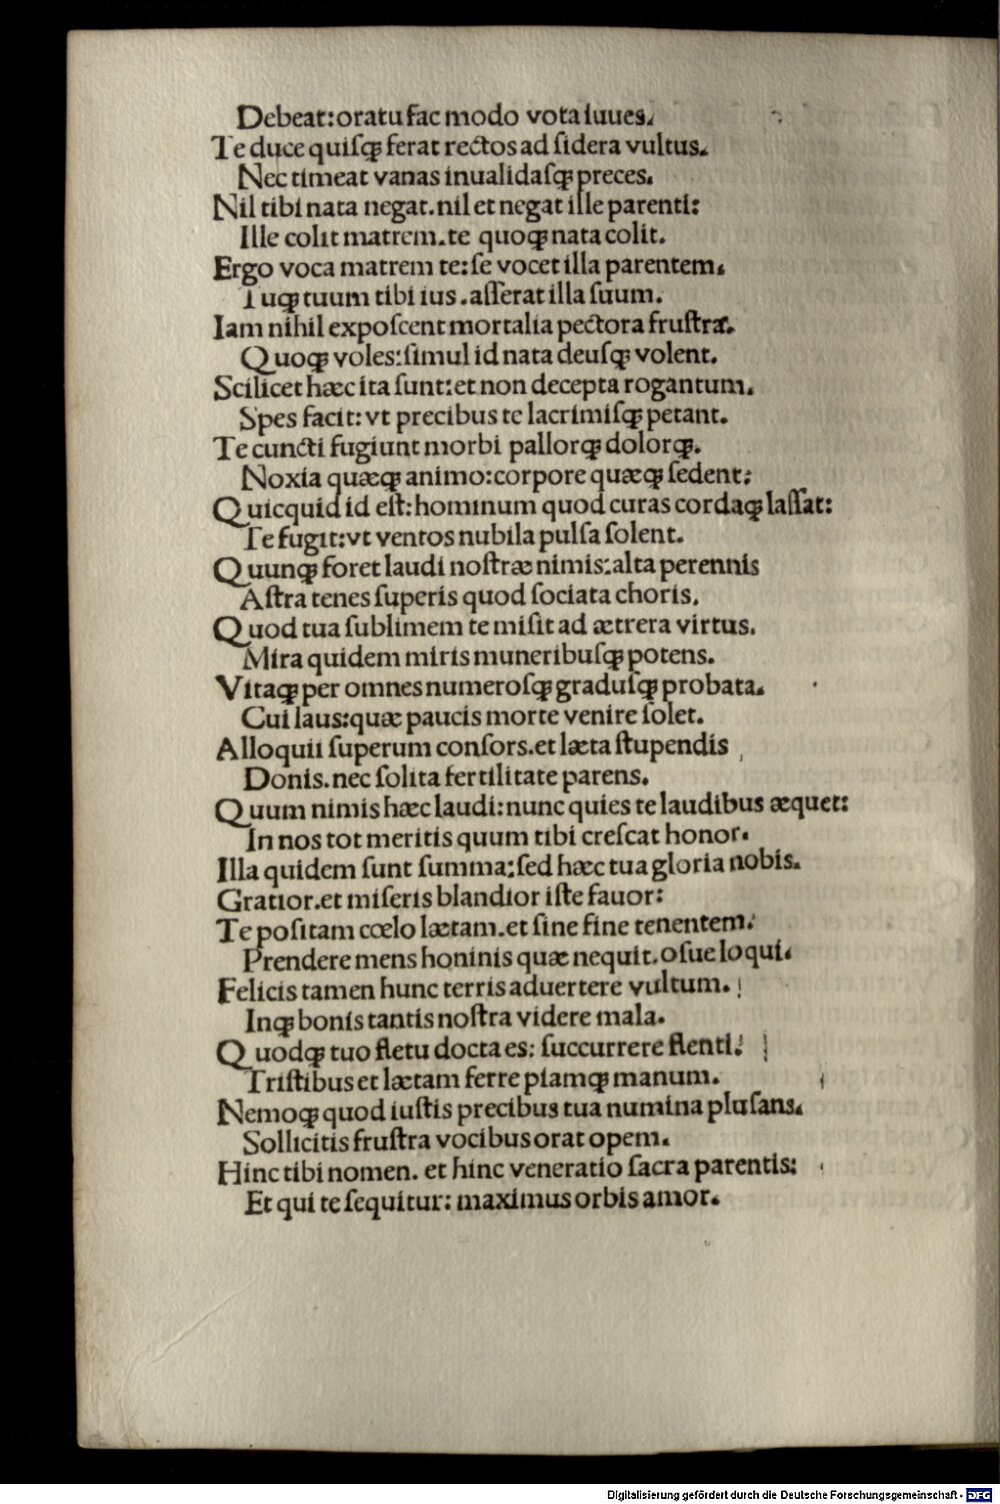 Debeat: oratu fac modo vota iuues.
Te duce quiſqꝫ ferat rectos ad ſidera vultus.
Nec timeat vanas inualidaſqꝫ preces.
Nil tibi nata negat. nil et negat ille parenti:
Ille colit matrem. te quoqꝫ nata colit.
Ergo voca matrem te: ſe vocet illa parentem.
Tuqꝫ tuum tibi ius. aſſerat illa ſuum.
Iam nihil expoſcent mortalia pectora fruſtra.
Quoqꝫ voles: ſimul id nata deuſqꝫ volent.
Scilicet hæc ita ſunt: et non decepta rogantum.
Spes facit: vt precibus te lacrimiſqꝫ petant.
Te cuncti fugiunt morbi pallorqꝫ dolorqꝫ.
Noxia quæqꝫ animo: corpore quæqꝫ ſedent:
Quicquid id eſt: hominum quod curas cordaqꝫ laſſat:
Te fugit: vt ventos nubila pulſa ſolent.
Quunqꝫ foret laudi noſtræ nimis: alta perennis
Aſtra tenes ſuperis quod ſociata choris.
Quod tua ſublimem te miſit ad ætrera virtus.
Mira quidem miris muneribuſqꝫ potens.
Vitaqꝫ per omnes numeroſqꝫ graduſqꝫ probata.
Cui laus: quæ paucis morte venire ſolet.
Alloquii ſuperum conſors. et læta ſtupendis
Donis. nec ſolita fertilitate parens.
Quum nimis hæc laudi: nunc quies te laudibus æquet:
In nos tot meritis quum tibi creſcat honor.
Illa quidem ſunt ſumma: ſed hæc tua gloria nobis.
Gratior. et miſeris blandior iſte fauor:
Te poſitam cœlo lætam. et ſine fine tenentem.
Prendere mens honinis quæ nequit. oſue loqui.
Felicis tamen hunc terris aduertere vultum.
Inqꝫ bonis tantis noſtra videre mala.
Quodqꝫ tuo fletu docta es: ſuccurrere flenti.
Triſtibus et lætam ferre piamqꝫ manum.
Nemoqꝫ quod iuſtis precibus tua numina pluſans.
Sollicitis fruſtra vocibus orat opem.
Hinc tibi nomen. et hinc veneratio ſacra parentis:
Et qui te ſequitur: maximus orbis amor.
Digitalisierung gefördert durch die Deutsche Forschungsgemeinschaft - DFG